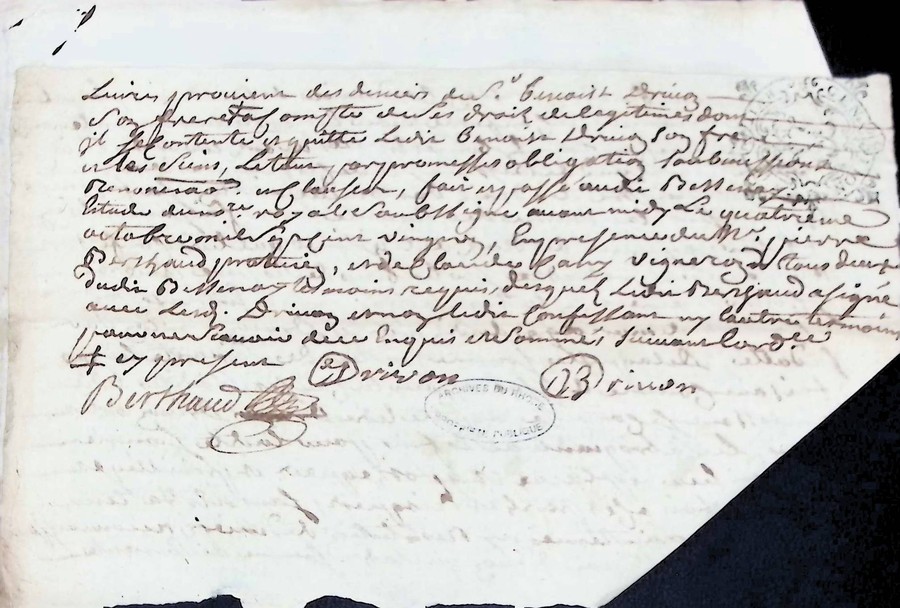 Livres provient des deniers du Sr. benoist Drivon
Son frere + a Compte de Ses droits de legitimes dont
il se contente et quitte Ledit benoist Drivon Son frere
et les Siens, Le tout par promesses obligation Soubmissions
Renonciaon. et Clauses, fait et passé audit Bessenay
Estude du nore. royal Soubssigné avant midy Le quatrieme
octobre mil Sept Cent vingt, En presence de Me. pierre
Berthaud praticien, et de Claude Cany vigneron tous deux
dudit Bessenay tesmoins requis, desquels Ledit Berthaud a signé
avec Lesd. Drivon et non Ledit Confessant ny lautre tesmoins
pour ne Scavoir de ce Enquis et Sommés Suivant Lordce
+ cy present
Drivon B Drivon
Berthaud
ARCHIVES DU RHONE
PUBLIQUE